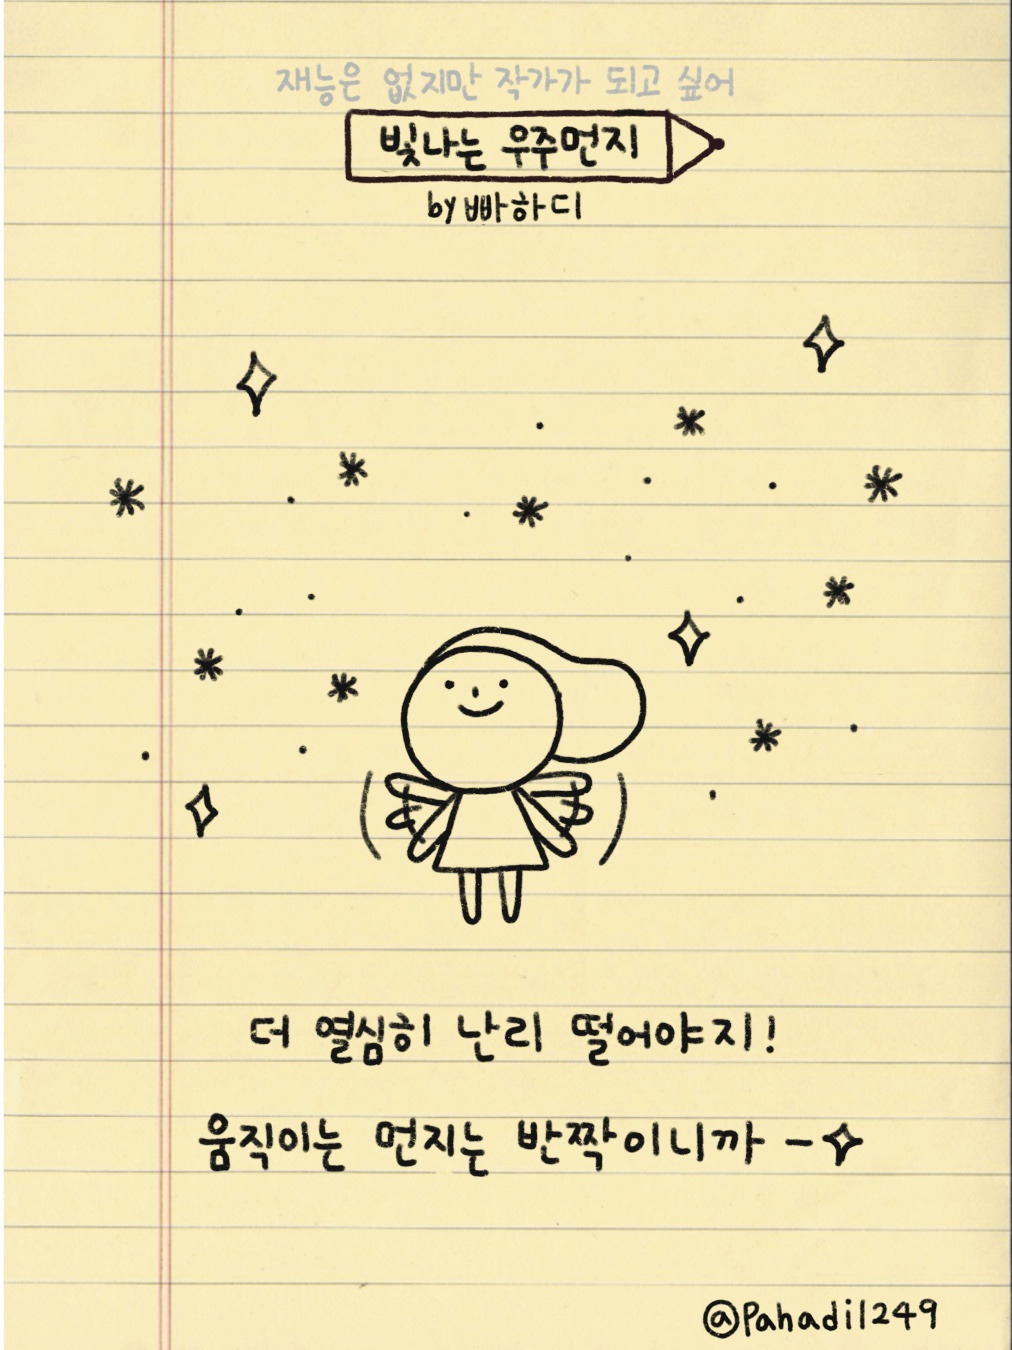 재능은 없지만 작가가 되고 싶어
빛나는 우주먼지
by 빠하디
더 열심히 난리 떨어야지!
움직이는 먼지는 반짝이니까 -
@Pahadi1249